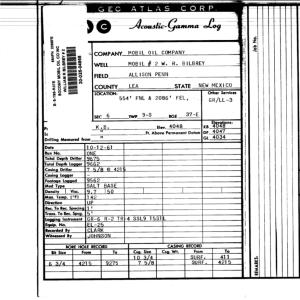 GEO ATLAS CORP
Acoustic-Gamma Log
COMPANY MOBIL OIL COMPANY
WELL MOBIL # 2 W. R. BILBREY
FIELD ALLISON PENN
COUNTY LEA STATE NEW MEXICO
LOCATION: Other Services
554' FNL & 2086' FEL, GR/LL-3
SEC 6 TWP 9-S RGE 37-E
Elevations:
K.B. Elev. 4048 KB 4048
Ft. Above Permanent Datum DF 4047
Drilling Measured from GL 4034
Date 10-12-61
Run No. ONE
Total Depth Driller 9675
Total Depth Logger 9662
Casing Driller 7 5/8 @ 4215
Casing Logger -
Footage Logged 9562
Mud Type SALT BASE
Density Visc. 9.7 50
Max. Temp. (°F) 142
Direction UP
Rec. To Rec. Spacing 1'
Trans. To Rec. Spng. 5'
Logging Instrument
Equip. No. EL-25
Recorded By CLARK
Witnessed By JOHNSON
BORE HOLE RECORD CASING RECORD
Bit Size From To Csg. Size Csg. Wt. From To
10 3/4 SURF. 411
6 3/4 4215 9275 7 5/8 SURF. 4215
Job No.
REMARKS: